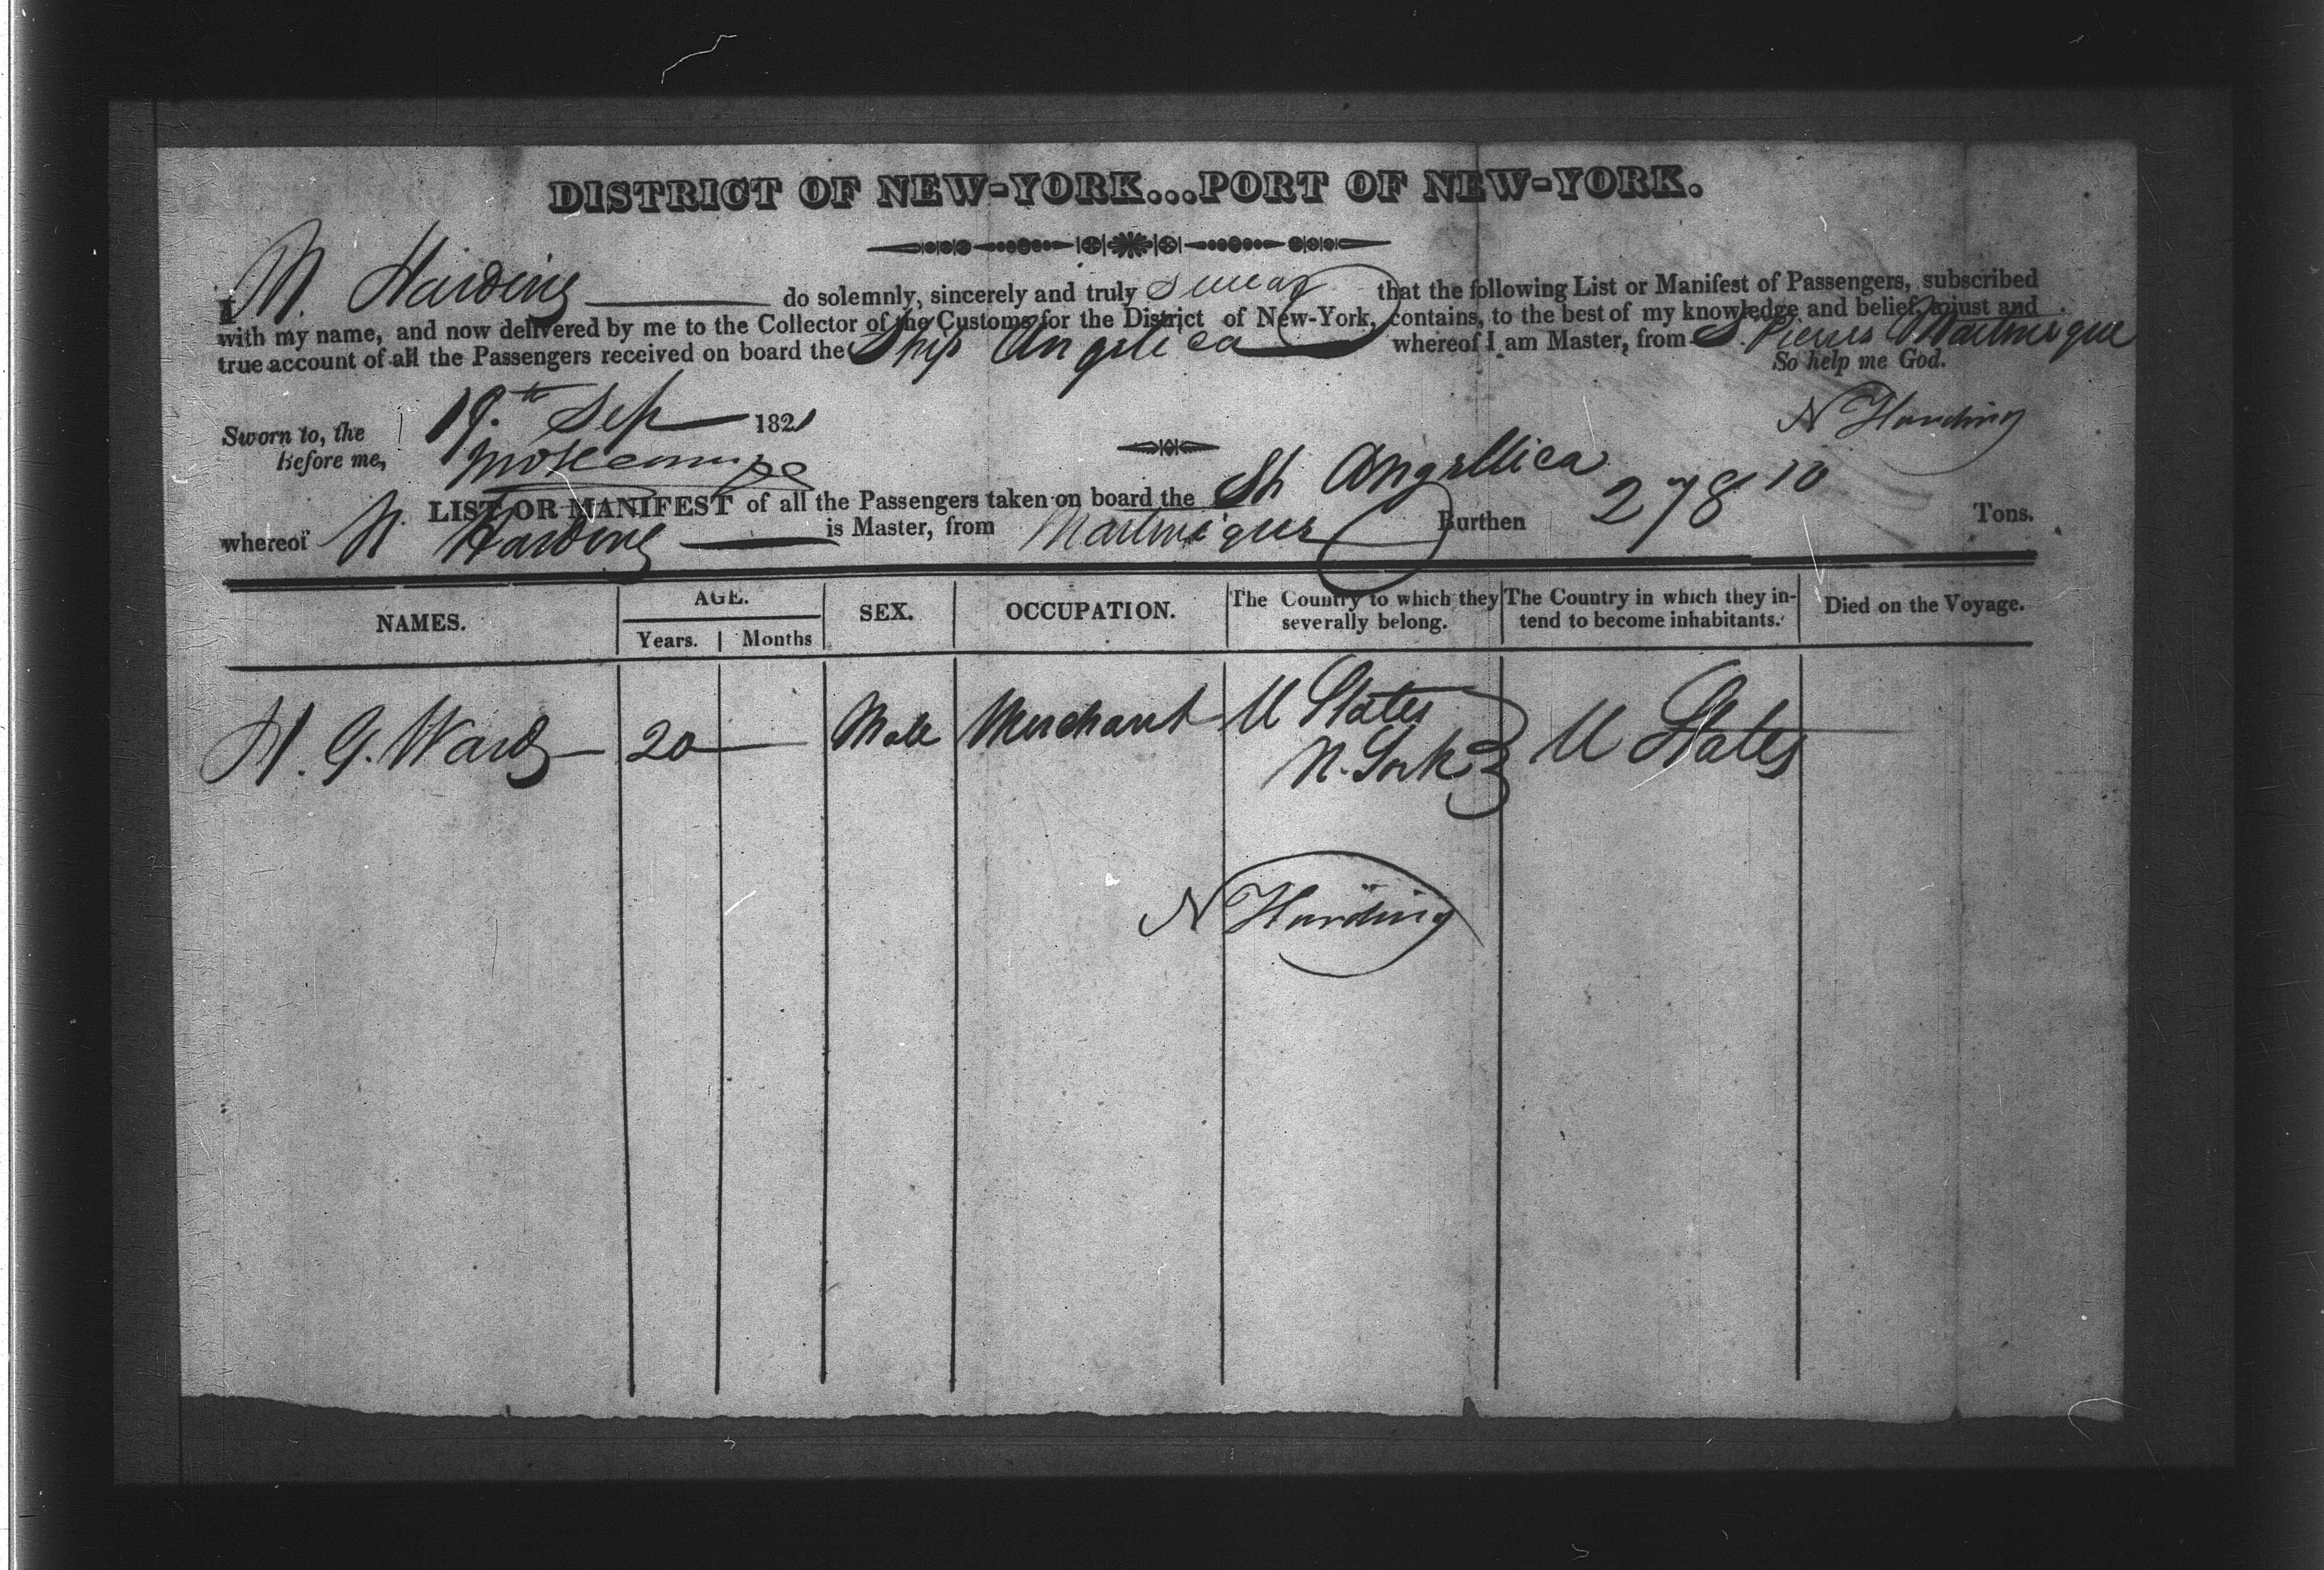 DISTRICT OF NEW-YORK...PORT OF NEW-YORK.
I N. Harding do solemnly, sincerely and truly Swear that the following List or Manifest of Passengers, subscribed
with my name, and now delivered by me to the Collector of the Customs for the District of New-York, contains, to the best of my knowledge and belief, a just and
true account of all the Passengers received on board the Ship Angelica whereof I am Master, from St. Pierres Martinique
So help me God.
Sworn to, the 19.th Sep 1821
N Harding
Before me,
LIST OR MANIFEST of all the Passengers taken on board the Sh Angellica
whereof N. Harding is Master, from Martinique Burthen 278 10 Tons.
NAMES. AGE. SEX. OCCUPATION. The Country to which they severally belong. The Country in which they intend to become inhabitants. Died on the Voyage.
Years. Months
H. G. Ward 20 Male Merchant U States U States
N. York
N Harding